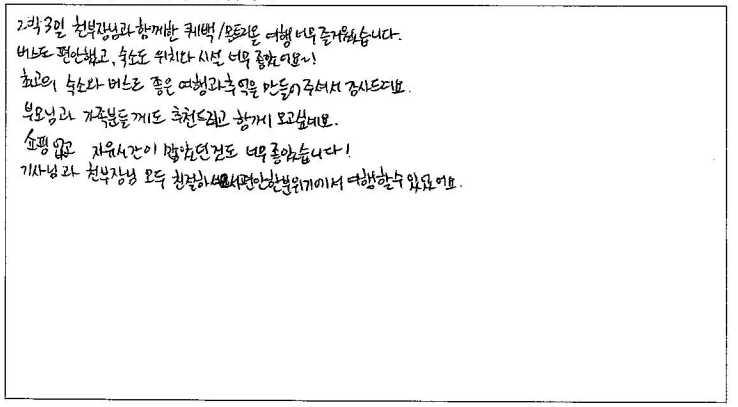 2박3일 천부장님과 함께한 퀘백/몬트리올 여행 너무 즐거웠습니다.
버스도 편안했고, 숙소도 위치와 시설 너무 좋았어요~!
최고의 숙소와 버스로 좋은 여행과 추억을 만들어주셔서 감사드려요.
부모님과 가족분들께도 추천드리고 함께 오고싶네요.
쇼핑 없고 자유시간이 많았던것도 너무 좋았습니다!
기사님과 천부장님 모두 친절하셔서 편안한 분위기에서 여행할 수 있었어요.